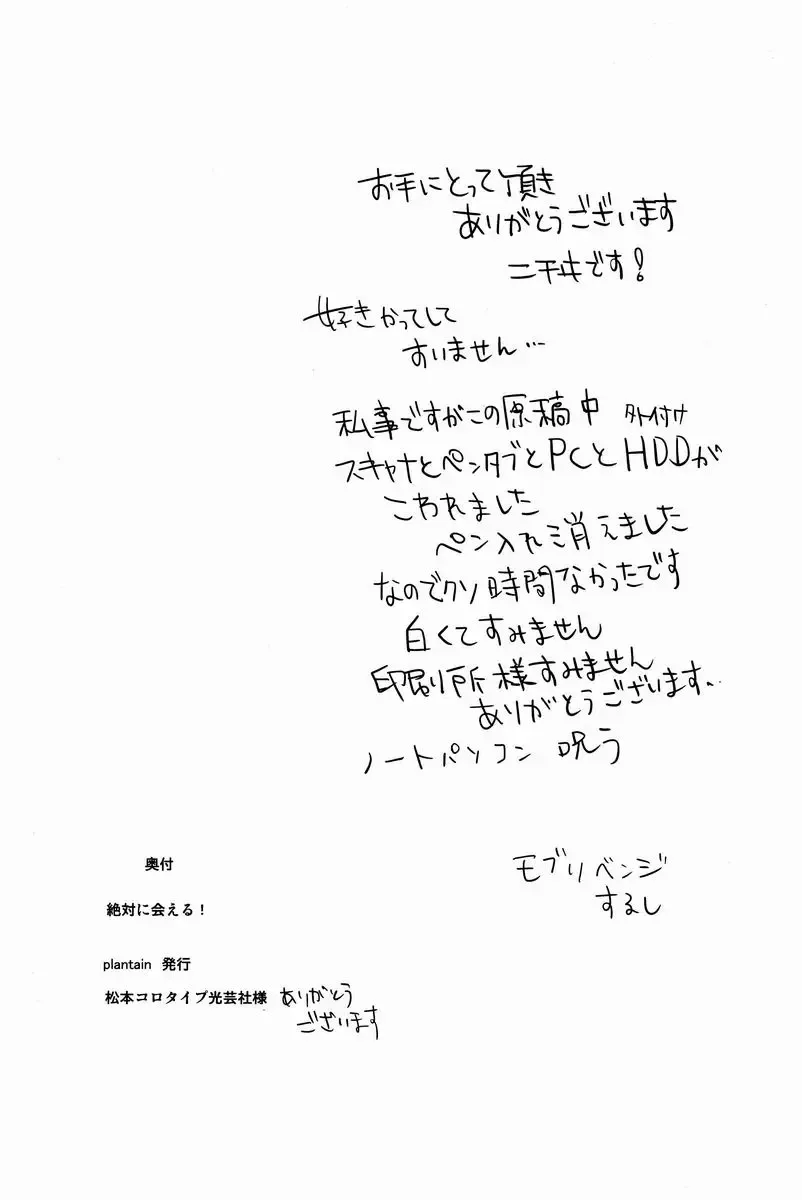 お手にとって頂き
ありがとうございます
二千ヰです！
好きかってして
すいません…
私事ですがこの原稿中 外付け
スキャナとペンタブとPCとHDDが
こわれました
ペン入れ消えました
なのでクソ時間なかったです
白くてすみません
印刷所様すみません
ありがとうございます…
ノートパソコン 呪う
モブリベンジ
するし
奥付
絶対に会える！
plantain 発行
松本コロタイプ光芸社様 ありがとう
ございます